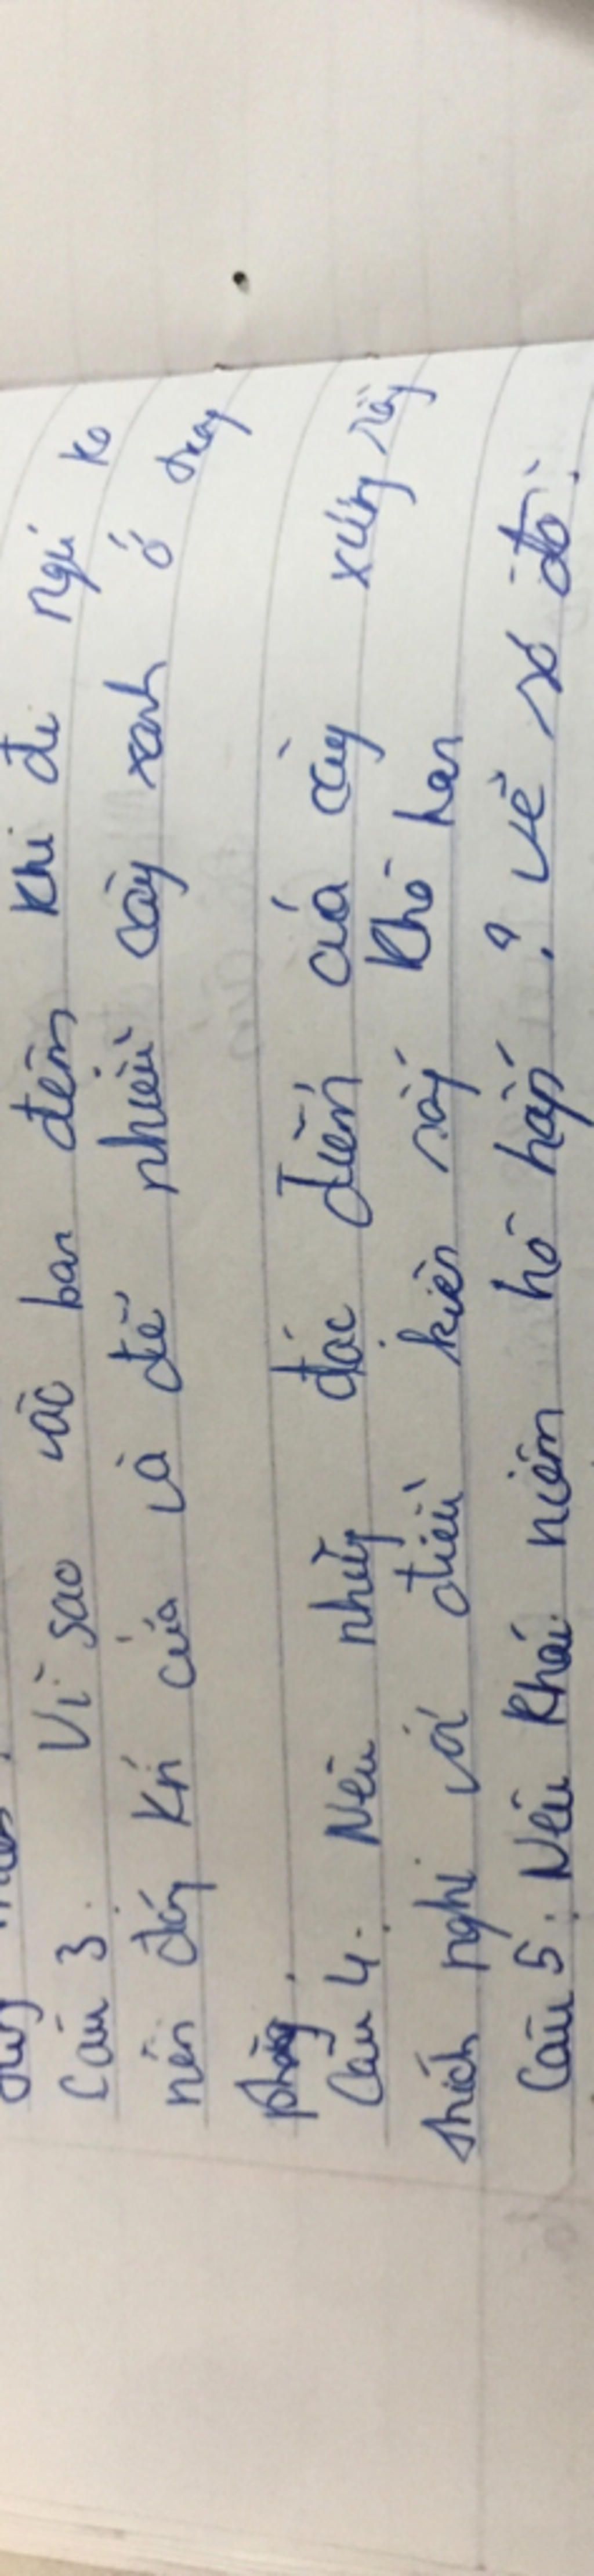 Câu 3. Vì sao vào ban đêm khi đi ngủ ko
nên đóng kín cửa và để nhiều cây xanh ở trong
phòng.
Câu 4. Nêu những đặc điểm của cây xương rồng
thích nghi với điều kiện sống khô hạn
Câu 5. Nêu khái niệm hô hấp? vẽ sơ đồ.